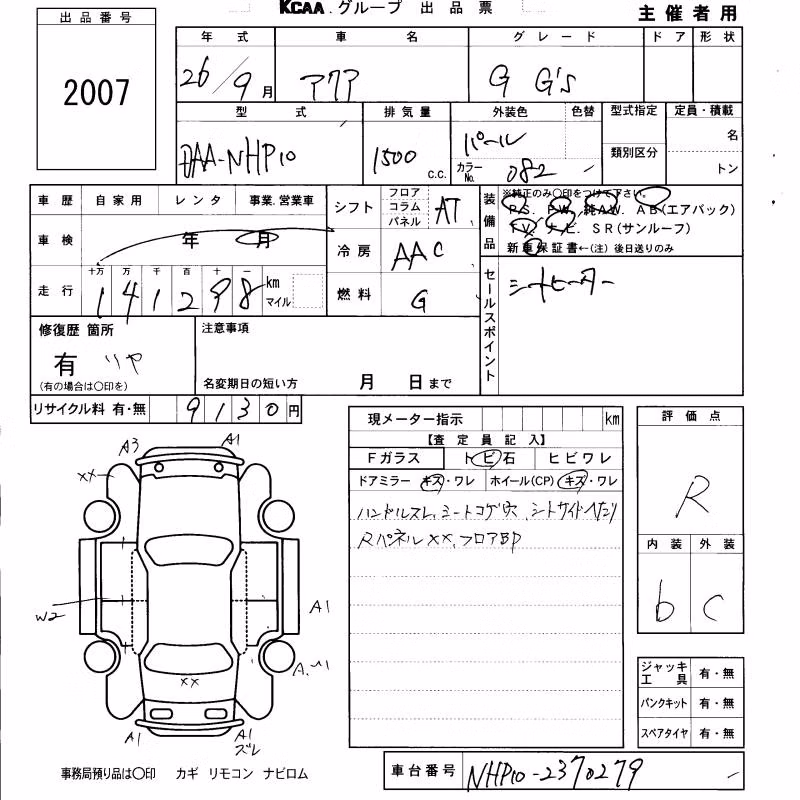 KCAA.グループ 出品票
主催者用
出品番号
2007
年式 車名 グレード ドア 形状
26/9月 アクア G G's
型式 排気量 外装色 色替 型式指定 定員・積載
DAA-NHP10 1500 c.c. パール
カラーNo. 082
類別区分
名
トン
車歴 自家用 レンタ 事業.営業車
シフト フロア コラム パネル AT
車検 年 月
冷房 AAC
走行 十万 万 千 百 十 一
141298 km マイル
燃料 G
装備品
※純正のみ○印をつけて下さい。
P.S. P.W. 純A.W. A B (エアバック)
T V. ナビ. S R (サンルーフ)
新車保証書←(注) 後日送りのみ
セールスポイント
シートヒーター
修復歴 箇所
有
(有の場合は○印を)
注意事項
名変期日の短い方 月 日まで
リサイクル料 有・無 9130円
現メーター指示 km
【査定員記入】
Fガラス トビ石 ヒビワレ
ドアミラー キズ・ワレ ホイール(CP) キズ・ワレ
ハンドルスレ、シートコゲ穴、シートサイドヘタリ
RパネルXX、フロアBP
評価点
R
内装 外装
b C
ジャッキ工具 有・無
パンクキット 有・無
スペアタイヤ 有・無
A3 A1
XX
W2
A1
XX
A1 A1
ズレ
事務局預り品は○印 カギ リモコン ナビロム
車台番号 NHP10-2370279